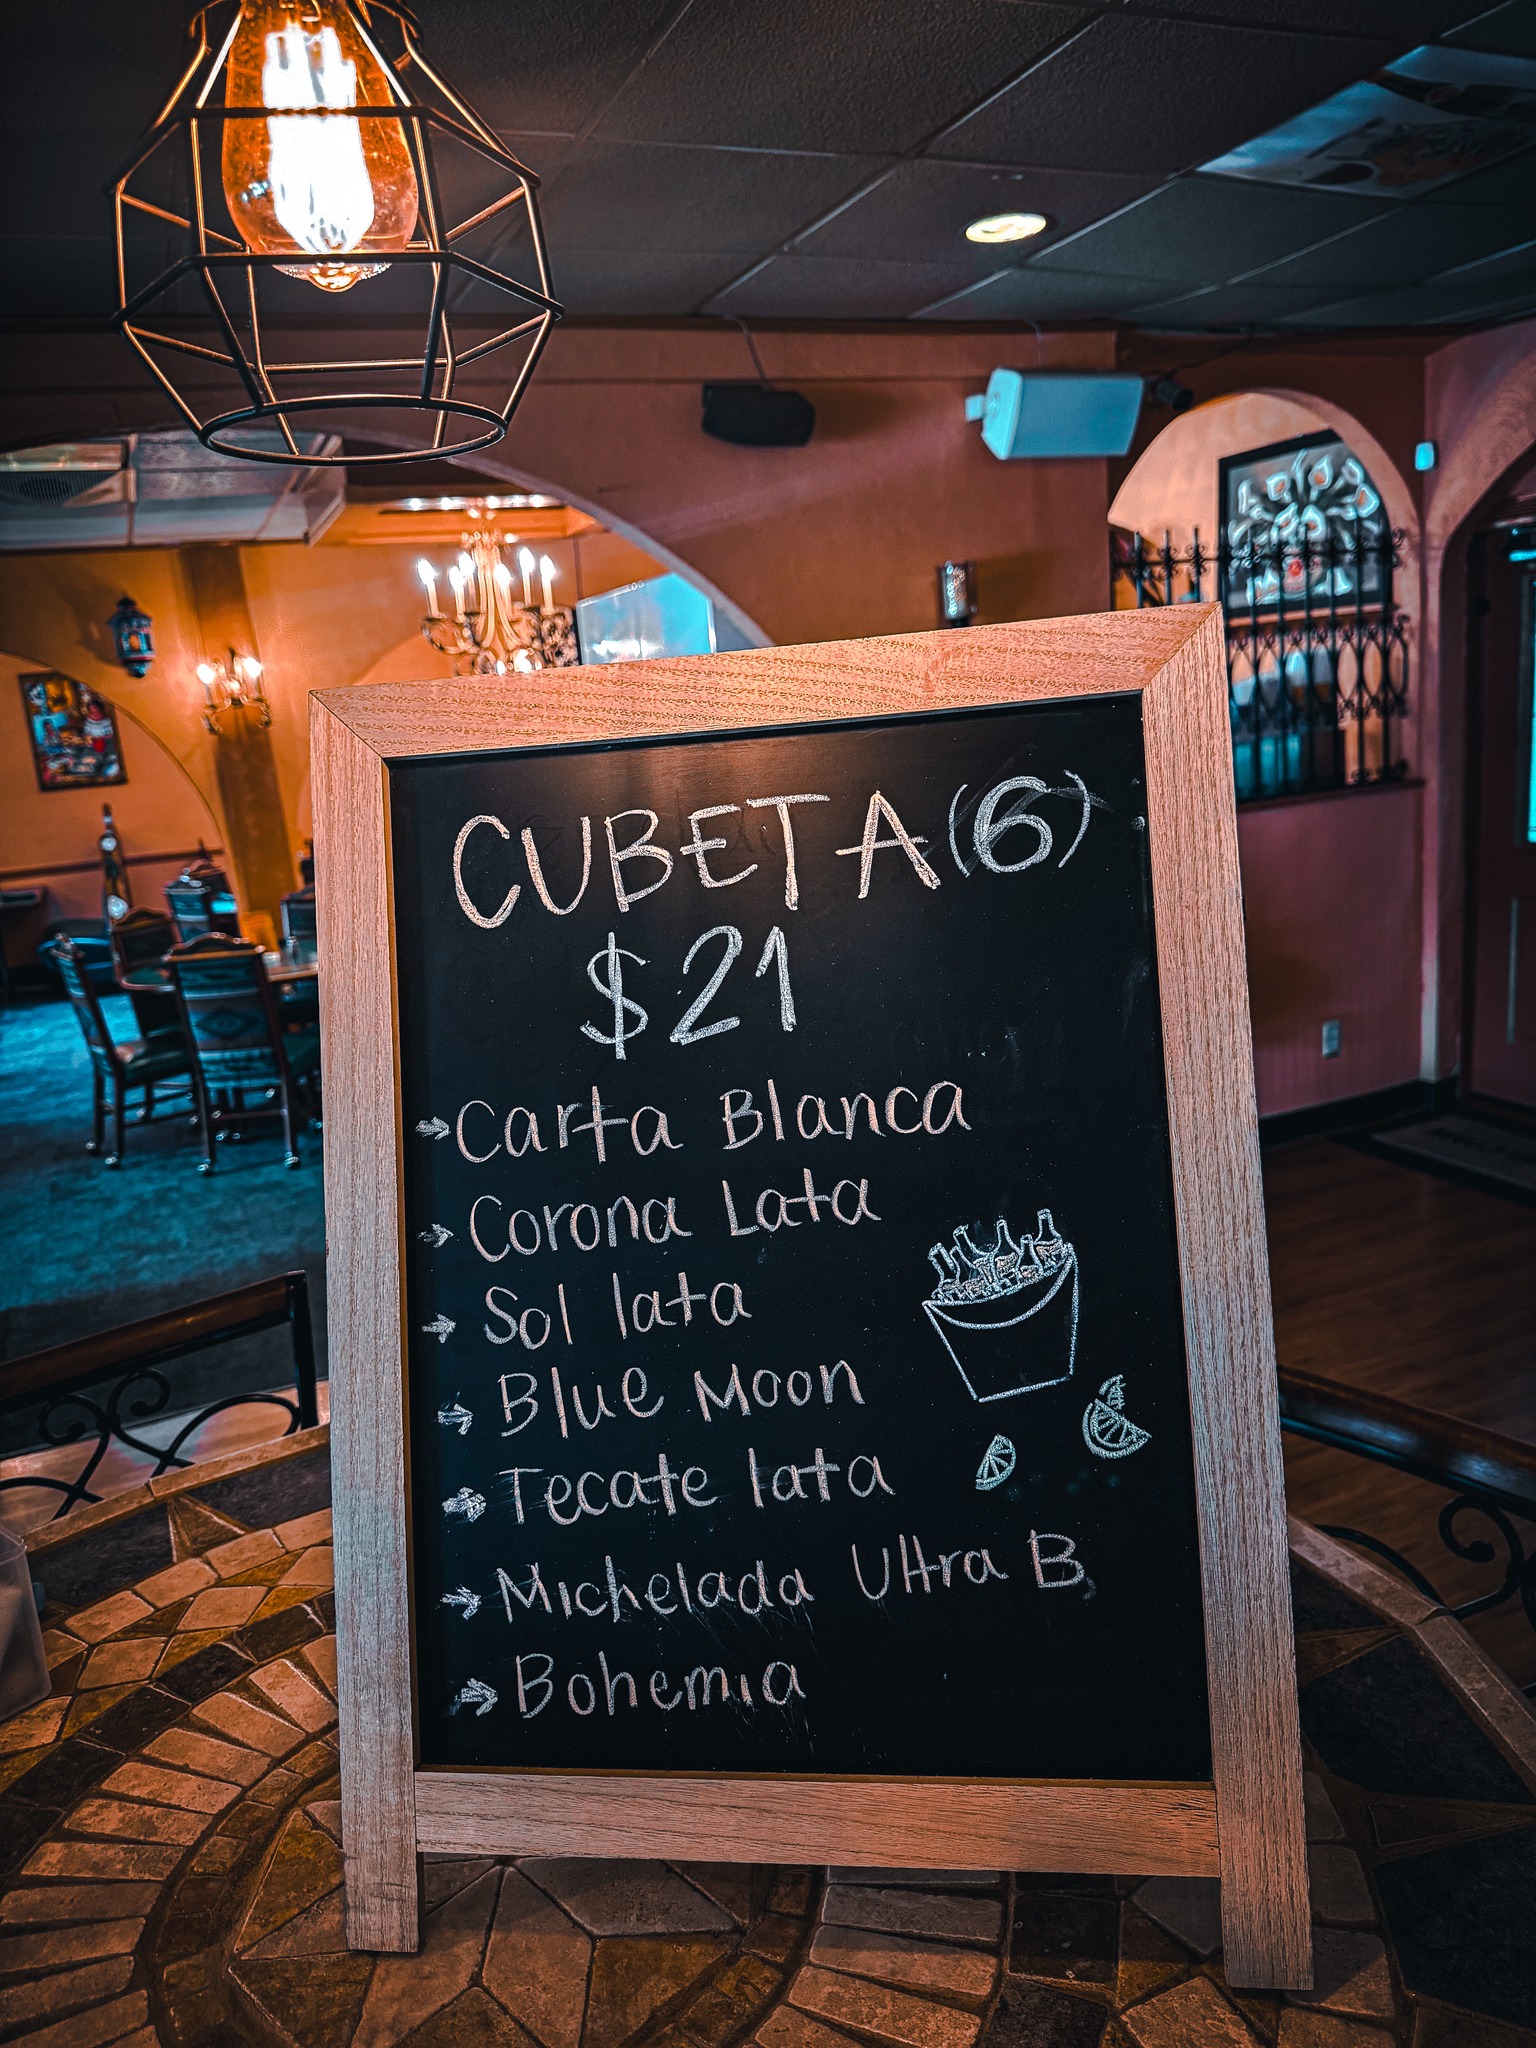 CUBETA (6)
$21
→ Carta Blanca
→ Corona Lata
→ Sol lata
→ Blue Moon
→ Tecate lata
→ Michelada Ultra B
→ Bohemia